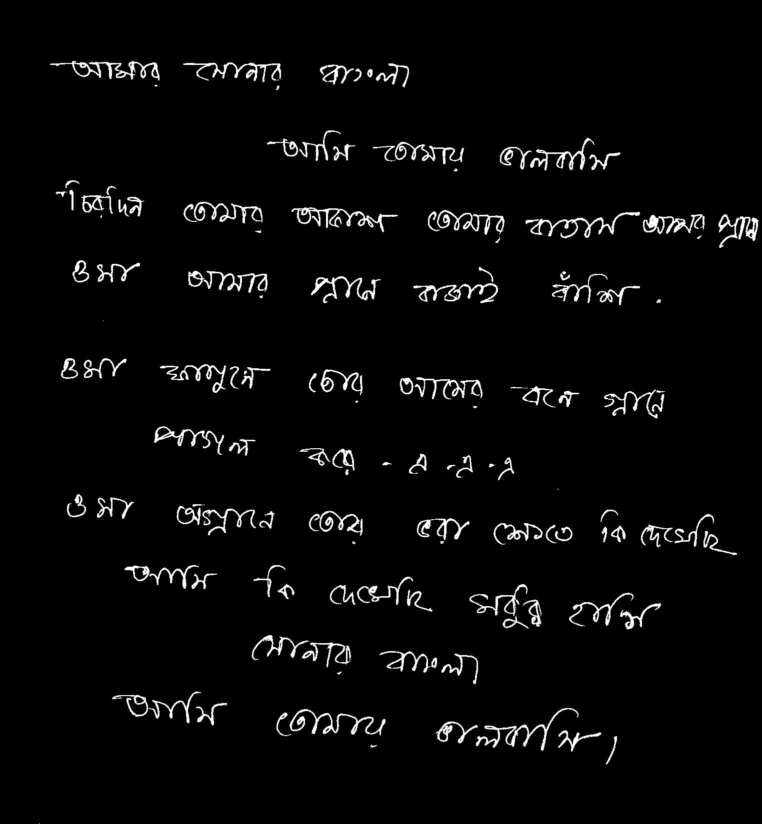 আমার সোনার বাংলা
আমি তোমায় ভালবাসি
চিরদিন তোমার আকাশ তোমার বাতাস আমার প্রানে
ওমা আমার প্রানে বাজাই বাঁশি .
ওমা ফাগুনে তোর আমের বনে ঘ্রানে
পাগল করে - এ - এ - এ
ওমা অঘ্রানে তোর ভরা ক্ষেতে কি দেখেছি
আমি কি দেখেছি মধুর হাসি
সোনার বাংলা
আমি তোমায় ভালবাসি।